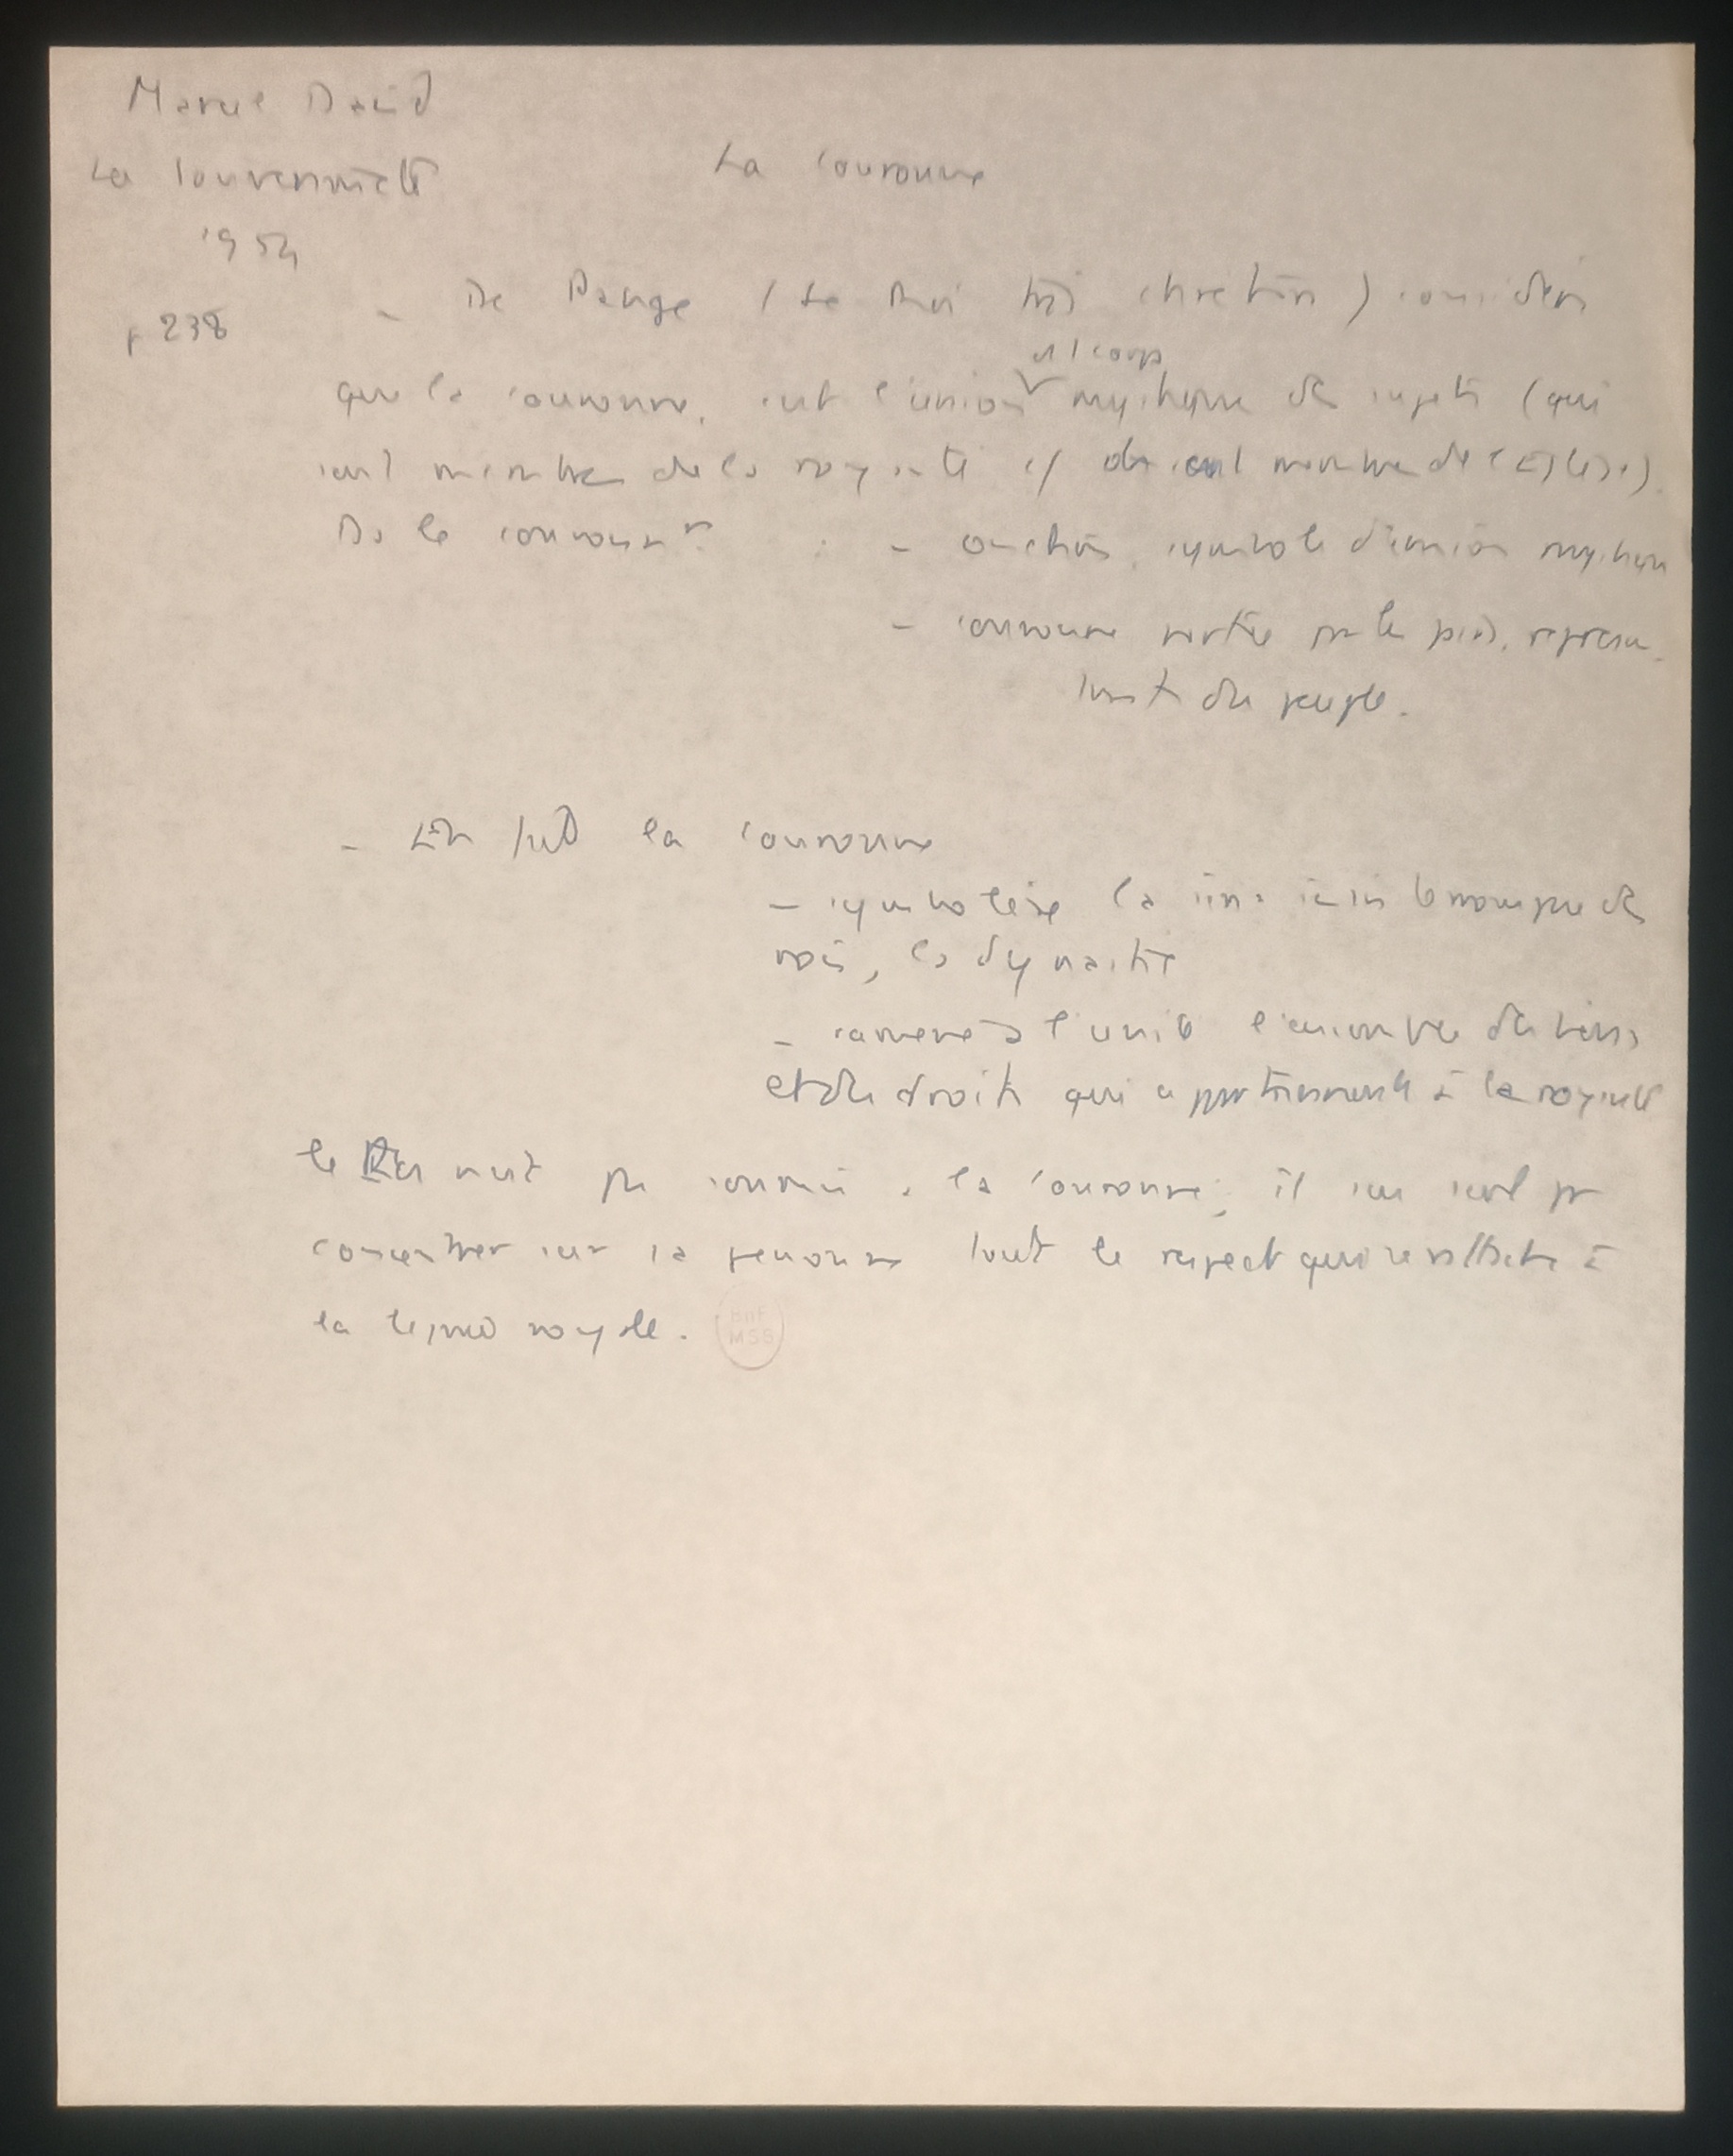 Marcel David
La Souveraineté
La couronne
1954
p 238
- De Pange (Le Roi très chrétien) considère
et l corps
que la couronne, c'est l'union mystique des sujets (qui
sont membres de la royauté c/ ils sont membres de l'Eglise).
Ds le couronnt : - onction, symbole d'union mystique
- couronne portée par les pairs, représen-
tants du peuple.
- En fait la couronne
- symbolise la ininterrompue des
rois, la dynastie
- ramène à l'unité l'ensemble des biens
et des droits qui appartiennent à la royauté
le Roi n'est pas soumis à la couronne; il
concentrer sur sa personne tout le respect qui s'attache à
la royale.
BnF
MSS